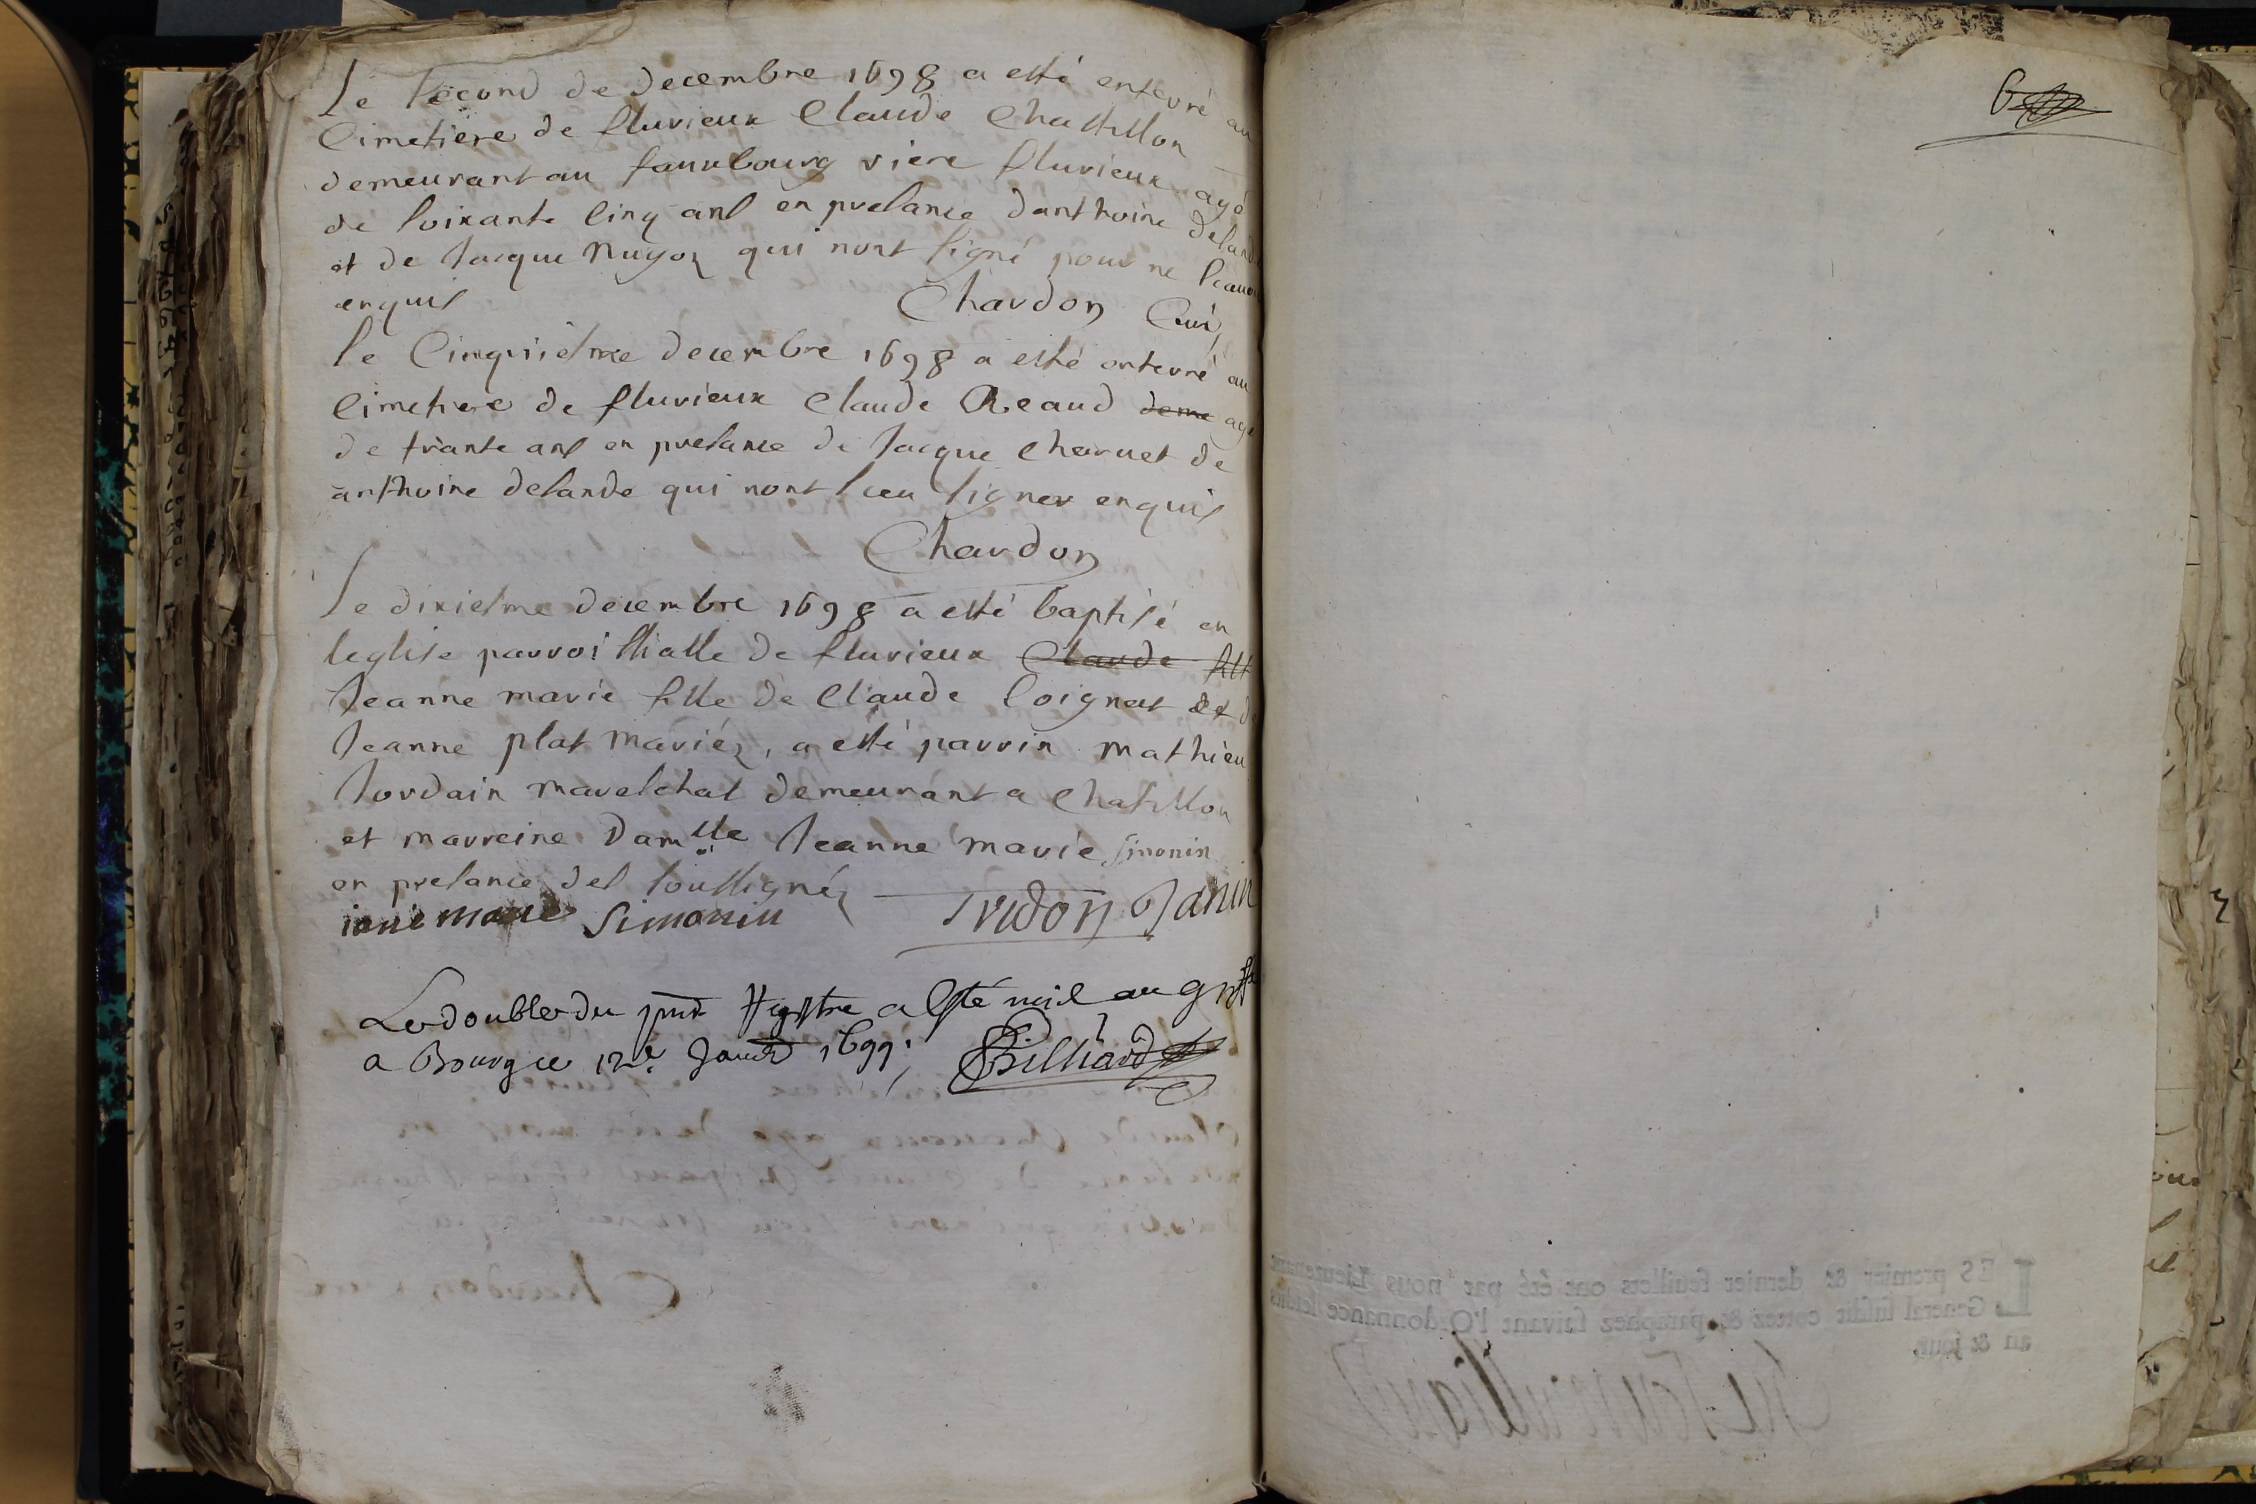 Le second de decembre 1698 a esté enterré au
Cimetiere de fluvieux Claude Chastillon
demeurant au fauxbourg riere fluvieux agé
de soixante Cinq ans en presance danthoine deland
et de Jacque nugoz qui nont signé pour ne scavoi
enquis Chardon Curé
le Cinquiesme decembre 1698 a esté enterré au
Cimetiere de fluvieux Claude Reaud deme agé
de trante ans en presance de Jacque Charuet de
anthoine delande qui nont sceu signer enquis
Chardon
Le dixiesme decembre 1698 a esté baptisé en
leglise parroissialle de fluvieux Claude fill
Jeanne marie fille de Claude Coignat et de
Jeanne plat mariéz, a esté parrin mathieu
Jordain mareschal demeurant a Chatillon
et marreine Dam.lle Jeanne marie Simonin
en presance des soussignéz
iane marie Simonin Tridon Janin
Le double du pnt Registre a Esté mis au greffe
a Bourg ce 12.e Janvr 1699. Billiard
6
LES premier & dernier feuillets ont été par nous Lieutenant
General susdit cottez & paraphez suivant l'Ordonnance lesdits
an & jour.